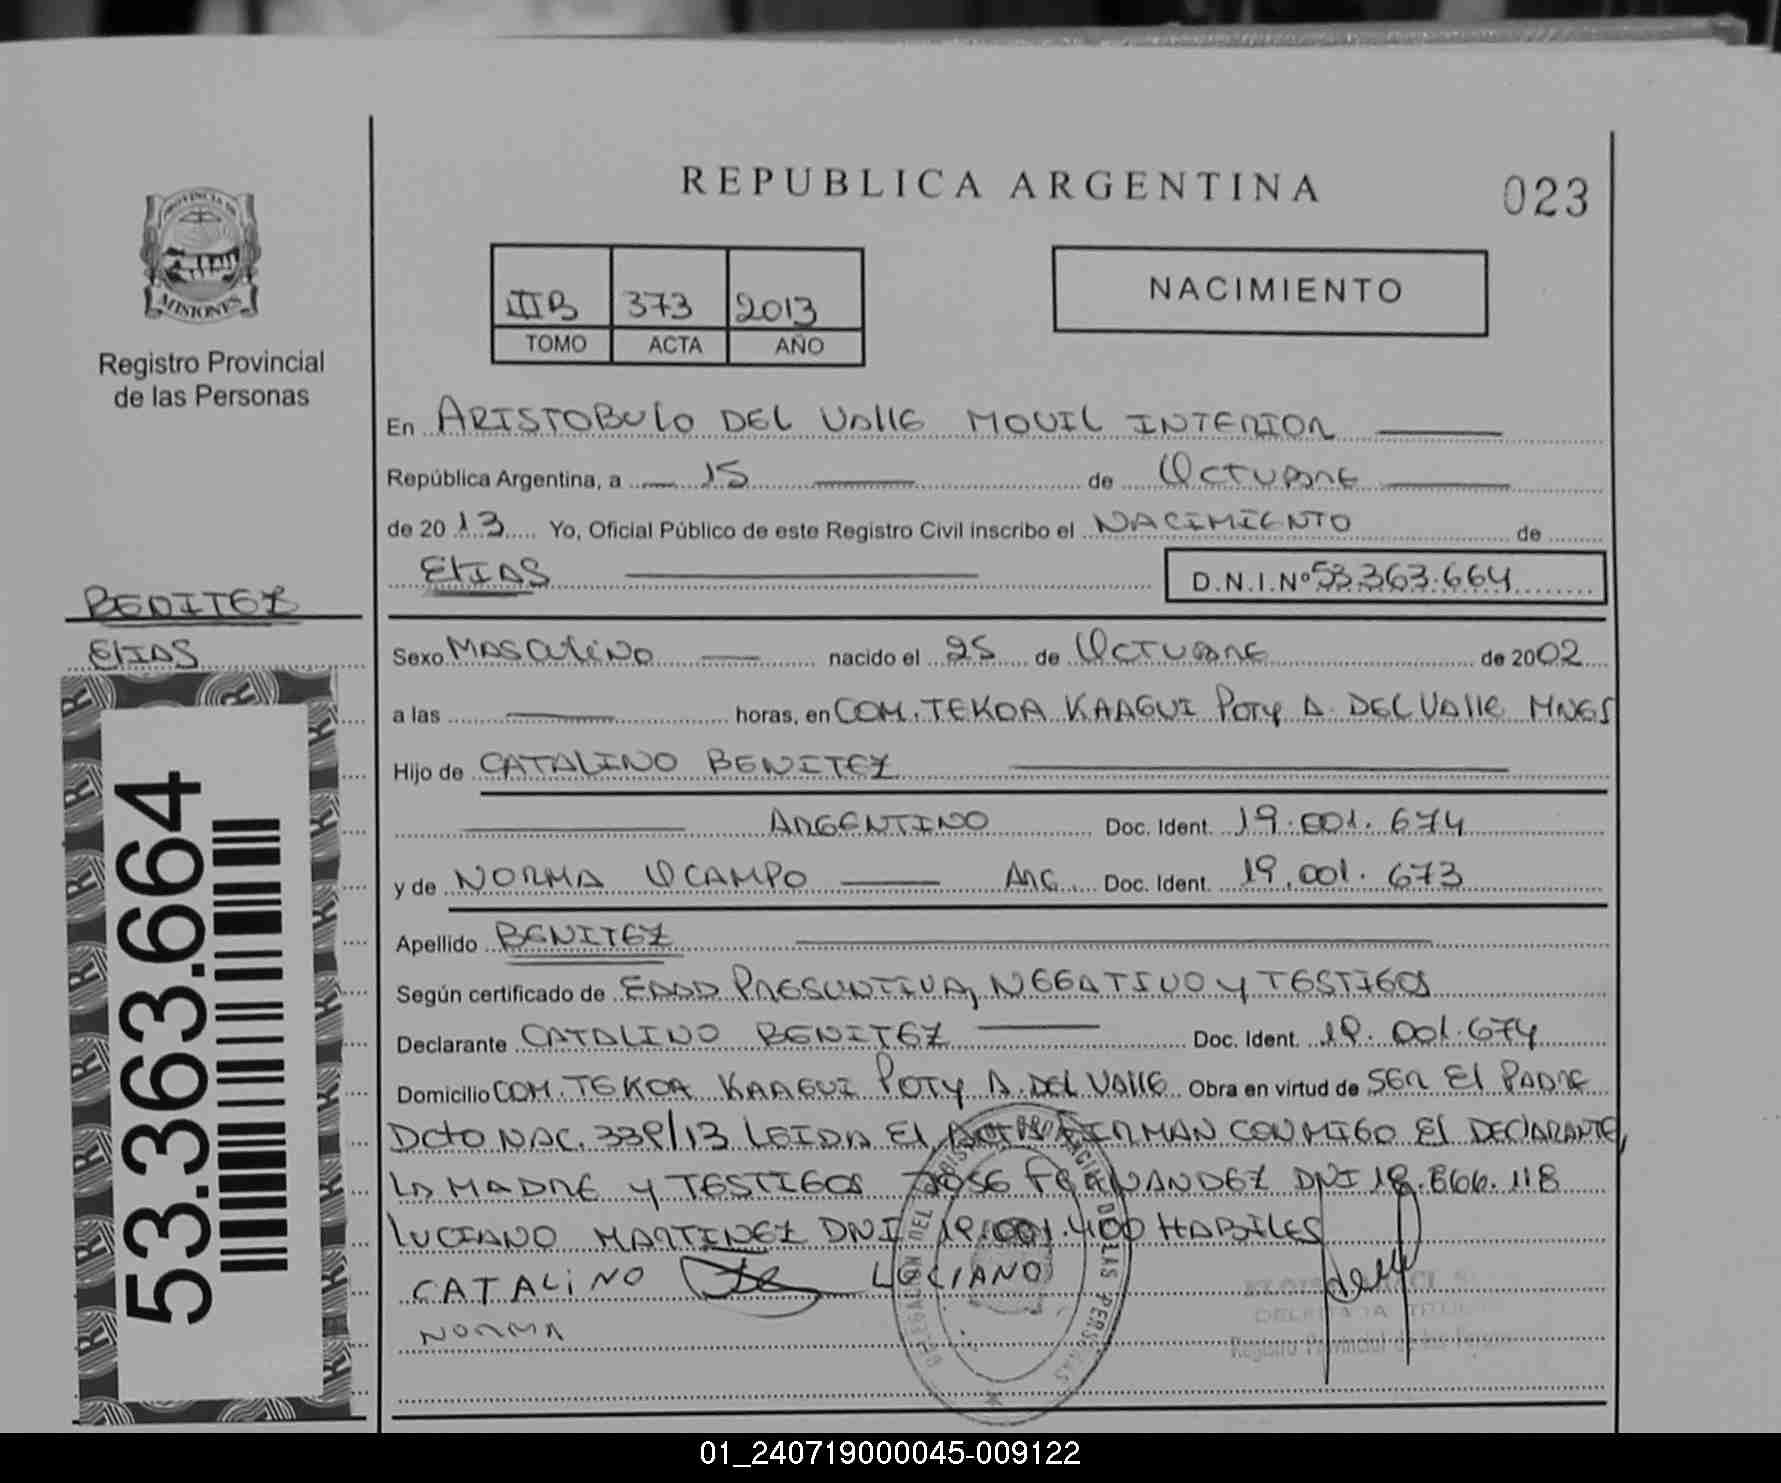 REPUBLICA ARGENTINA
023
PROVINCIA DE
MISIONES
Registro Provincial
de las Personas
IIIB 373 2013
TOMO ACTA AÑO
NACIMIENTO
En ARISTOBULO DEL VALLE MOVIL INTERIOR
República Argentina, a 15 de OCTUBRE
de 2013 Yo, Oficial Público de este Registro Civil inscribo el NACIMIENTO de
ELIAS D.N.I.Nº 53.363.664
BENITEZ
ELIAS
53.363.664
Sexo MASCULINO nacido el 25 de OCTUBRE de 2002
a las horas, en COM. TEKOA KAAGUI POTY A. DEL VALLE MNES
Hijo de CATALINO BENITEZ
ARGENTINO Doc. Ident. 19.001.674
y de NORMA OCAMPO ARG. Doc. Ident. 19.001.673
Apellido BENITEZ
Según certificado de EDAD PRESUNTIVA, NEGATIVO Y TESTIGOS
Declarante CATALINO BENITEZ Doc. Ident. 19.001.674
Domicilio COM. TEKOA KAAGUI POTY A. DEL VALLE Obra en virtud de SER EL PADRE
DCTO NAC. 339/13 LEIDA EL ACTA FIRMAN CONMIGO EL DECLARANTE,
LA MADRE Y TESTIGOS JOSE FERNANDEZ DNI 18.866.118
LUCIANO MARTINEZ DNI 19.001.400 HABILES
CATALINO LUCIANO
NORMA
DELEGACION DEL REGISTRO PROVINCIAL DE LAS PERSONAS
DELEGADA TITULAR
Registro Provincial de las Personas
01_240719000045-009122